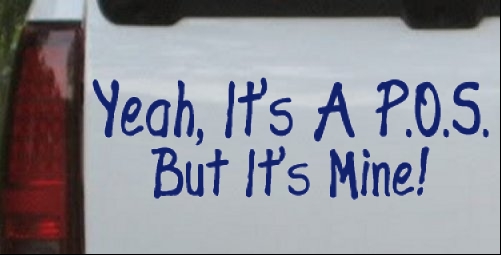 Yeah, It's A P.O.S.
But It's Mine!